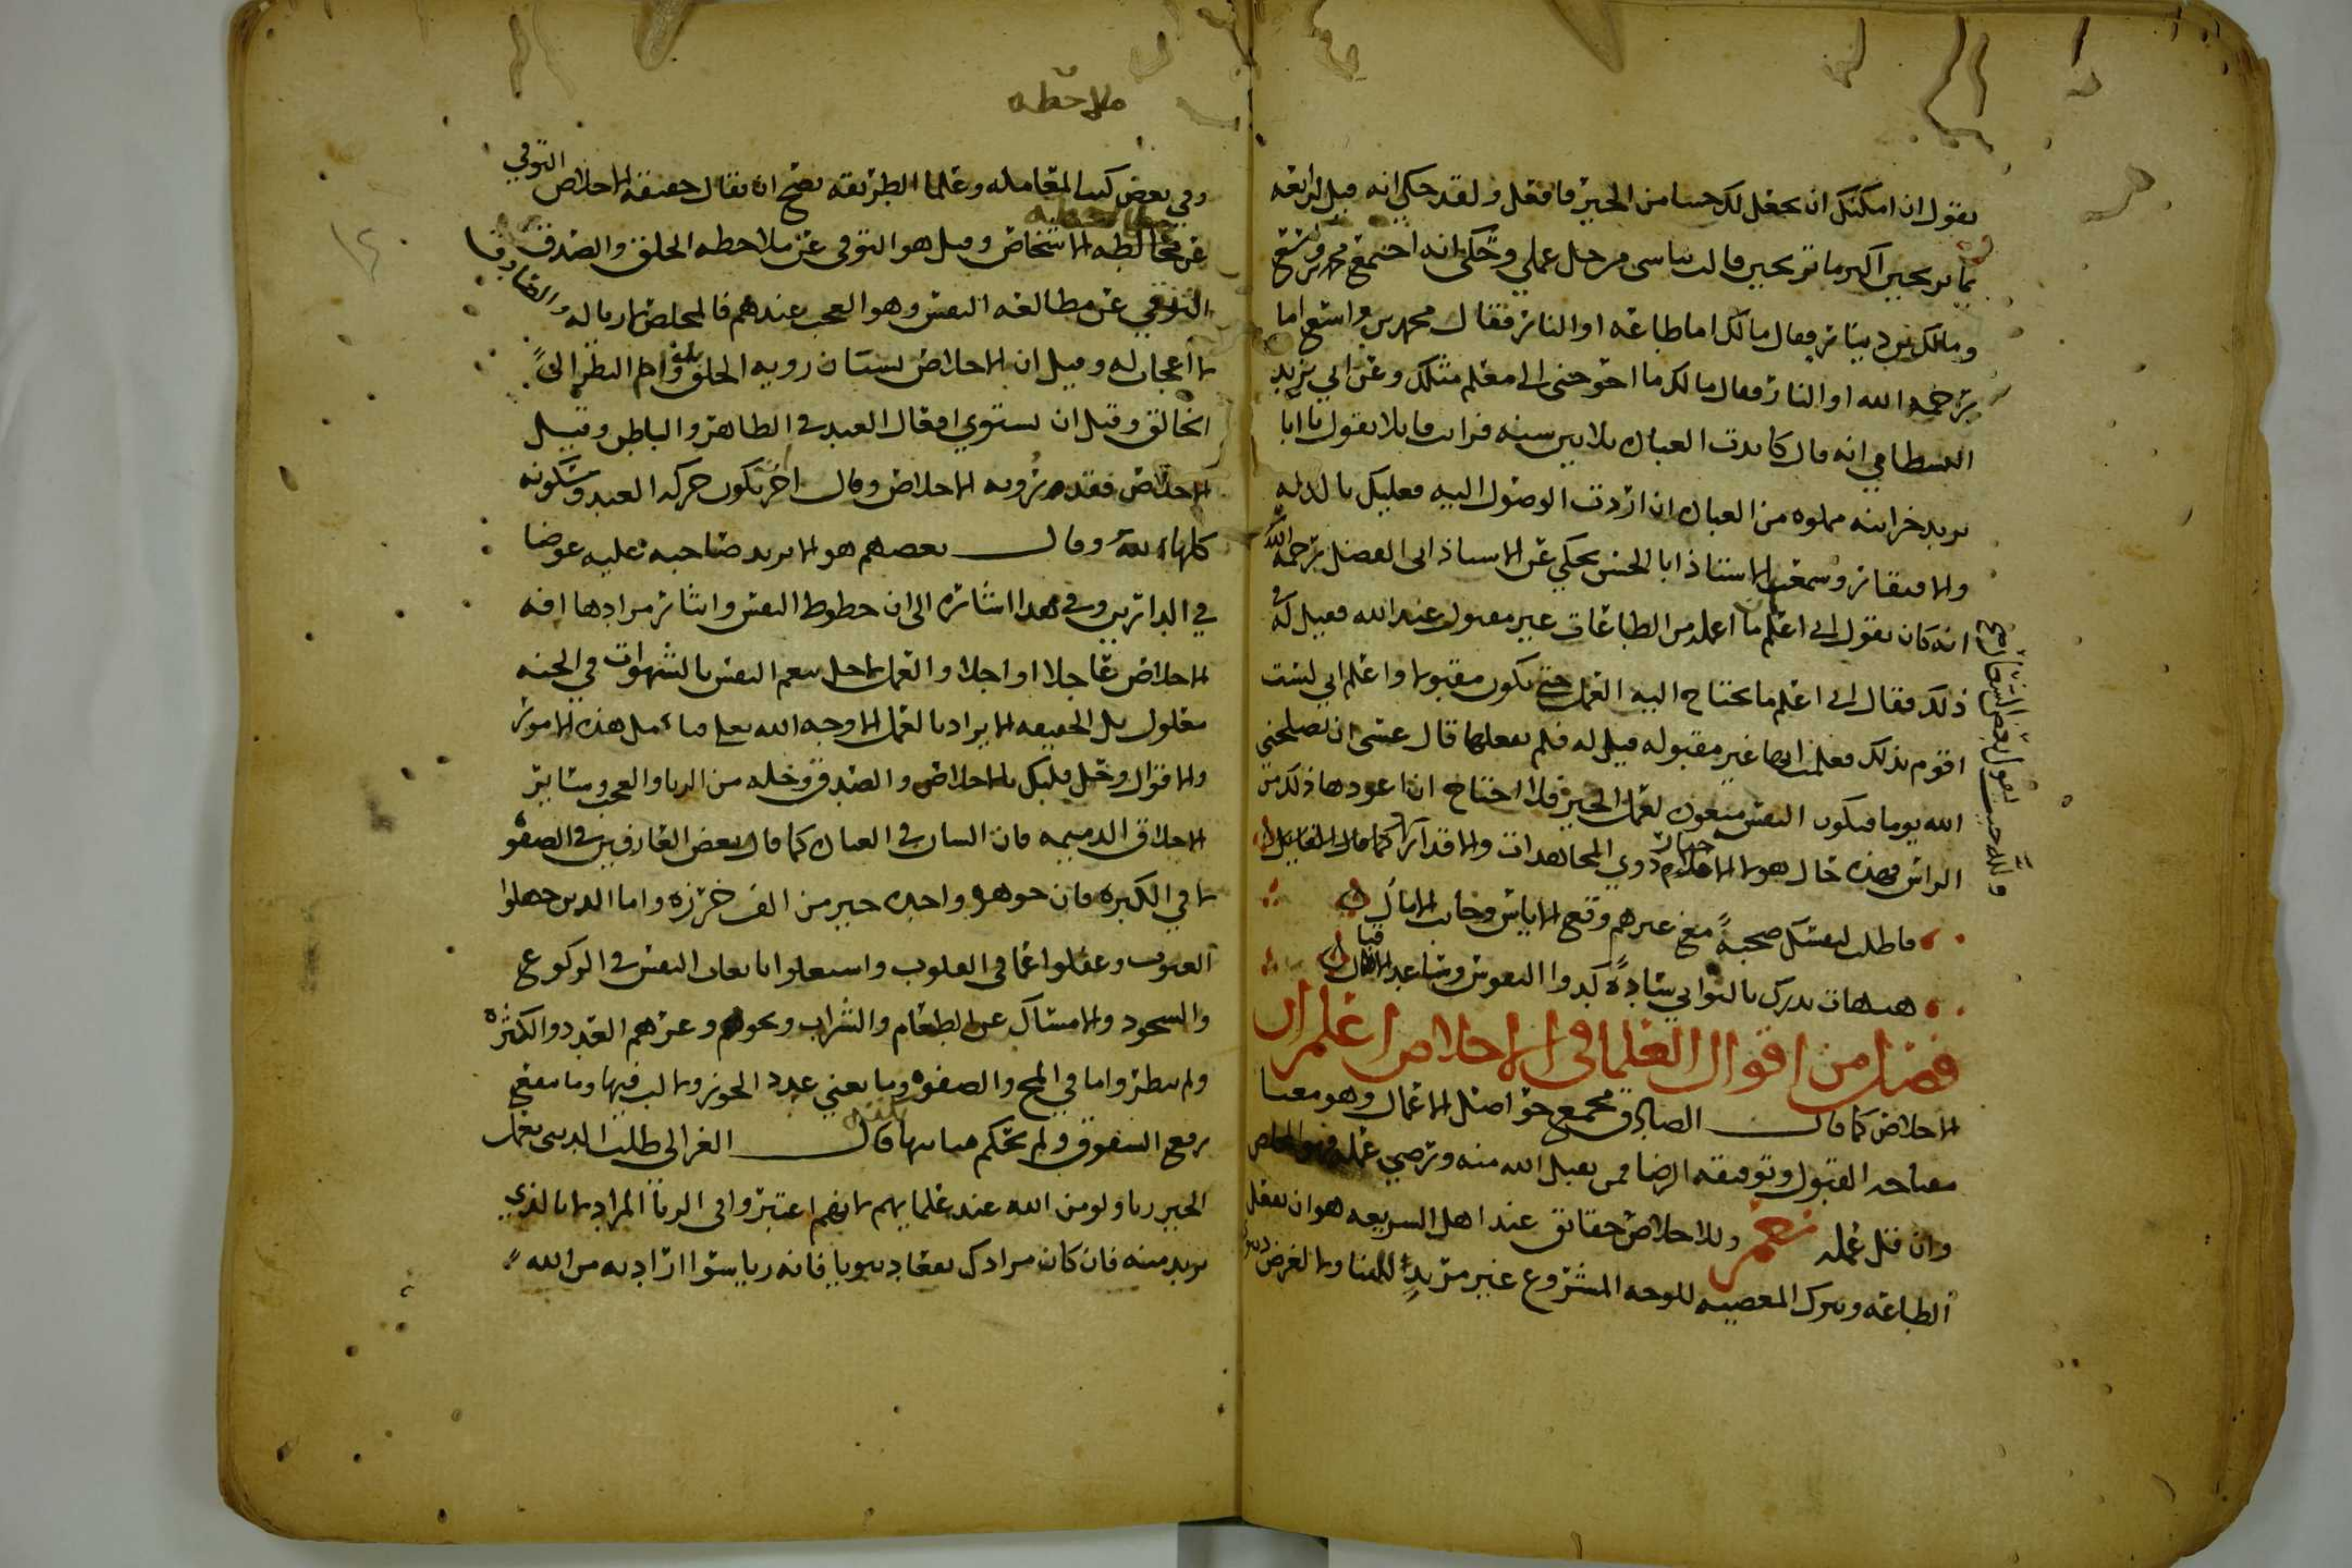 يقول ان امكنك ان يجعل لك حسا من الخير فافعل ولقد حكي انه قيل لرابعه
بما ترتجين اكثر ما ترتجين قالت بياسي من جل عملي وحكي انه اجتمع محمد بن واسع
ومالك بن دينار فقال مالك اما طاعة او النار فقال محمد بن واسع اما
رحمة الله او النار فقال مالك ما احوجني الى معلم مثلك وعن ابي يزيد
البسطامي انه قال كابدت العباده ثلاثين سنه فرايت قايلا يقول يا ابا
يزيد خزاينه مملوه من العباده ان اردت الوصول اليه فعليك بالذله
والافتقار وسمعت الاستاذ ابا الحسن يحكي عن الاستاذ ابي الفضل رحمه الله
انه كان يقول اني اعلم ان ما اعمله من الطاعات غير مقبول عند الله فقيل له في
ذلك فقال اني اعلم ما يحتاج اليه العمل حتى يكون مقبولا واعلم اني لست
اقوم بذلك فعلمت انها غير مقبوله قيل له فلم تفعلها قال عسى ان يصلحني
الله يوما فتكون النفس متعوده لعمل الخير فلا احتاج ان اعودها ذلك من
الراس فهذه حال هولا الاعلام ذوي المجاهدات والاقدار كما قال القايل
فاطلب لنفسك صحبة مع غيرهم وقع الاياس وخابت الامال
هيهات تدرك بالتواني سادة كدوا النفوس وساعد الاقبال
فصل من اقوال العلما في الاخلاص اعلم ان
الاخلاص كما قال الصادق يجمع حواصل الاعمال وهو معنا
مفتاحه القبول وتوقيعه الرضا فمن تقبل الله منه ورضي عمله فهو المخلص
وان قل عمله نعم وللاخلاص حقائق عند اهل الشريعه هو ان يفعل
الطاعه ويترك المعصيه للوجه المشروع غير مريد للثنا ولا لغرض
ملاحظه
وفي بعض كتب المعامله وعلما الطريقه يصح ان يقال حقيقة الاخلاص التوقي
عن مخالطه الاشخاص وقيل هو التوقي عن ملاحظه الخلق والصدق
التوقي عن مطالعه النفس وهو العجب عندهم فالمخلص لا ريا له والصادق
لا اعجاب له وقيل ان الاخلاص نسيان رويه الخلق بدوام النظر الى
الخالق وقيل ان تستوي افعال العبد في الظاهر والباطن وقيل
الاخلاص فقد رويه الاخلاص وقال اخر تكون حركه العبد وسكونه
كلها لله وقال بعضهم هو الا يريد صاحبه عليه عوضا
في الدارين وفي هذا اشاره الى ان حظوظ النفس وايثار مرادها افه
الاخلاص عاجلا او اجلا والعمل لاجل تنعم النفس بالشهوات في الجنه
معلول بل الحقيقه الا يراد بالعمل الا وجه الله تعالى فتامل هذه الامور
والاقوال وحل قلبك بالاخلاص والصدق وخله من الريا والعجب وساير
الاخلاق الذميمه فان الشان في العباده كما قال بعض العارفين في الصفو
لا في الكثره فان جوهره واحده خير من الف خرزه واما الذين جهلوا
العيوب وغفلوا عما في القلوب واشتغلوا باتعاب النفس في الركوع
والسجود والامساك عن الطعام والشراب ونحوهم وغرهم العدد والكثره
ولم ينظروا ما في المخ والصفوه وما يعني عدد الجوز ولا لب فيها وما ينفع
رفع السقوف ولم تحكم مبانيها قال الغزالي طلب الدنيا بعمل
الخير ريا ولو من الله عند علمايهم لانهم اعتبروا في الريا المراد لا بالذي
يريد منه فان كان مرادك نفعا دنيويا فانه ريا سوا اراد به من الله